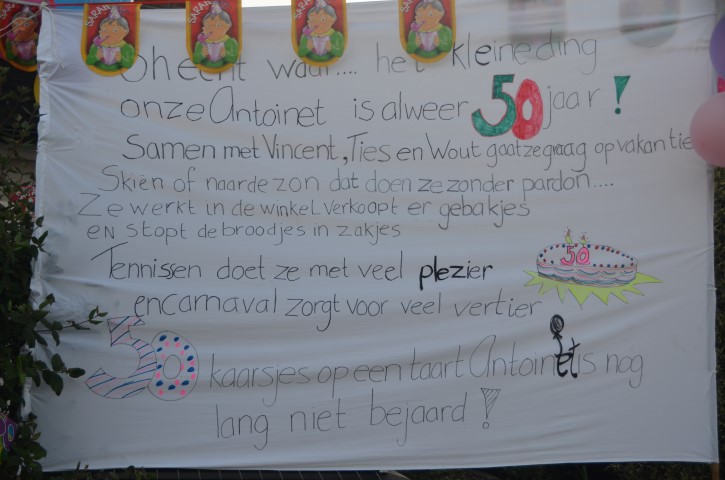 SARAH SARAH SARAH
Oh echt waar.... het kleine ding
onze Antoinet is alweer 50 jaar!
Samen met Vincent, Ties en Wout gaat ze graag op vakantie
Skiën of naar de zon dat doen ze zonder pardon....
Ze werkt in de winkel verkoopt er gebakjes
en stopt de broodjes in zakjes
50
Tennissen doet ze met veel plezier
en carnaval zorgt voor veel vertier
50 kaarsjes op een taart Antoinet is nog
lang niet bejaard!